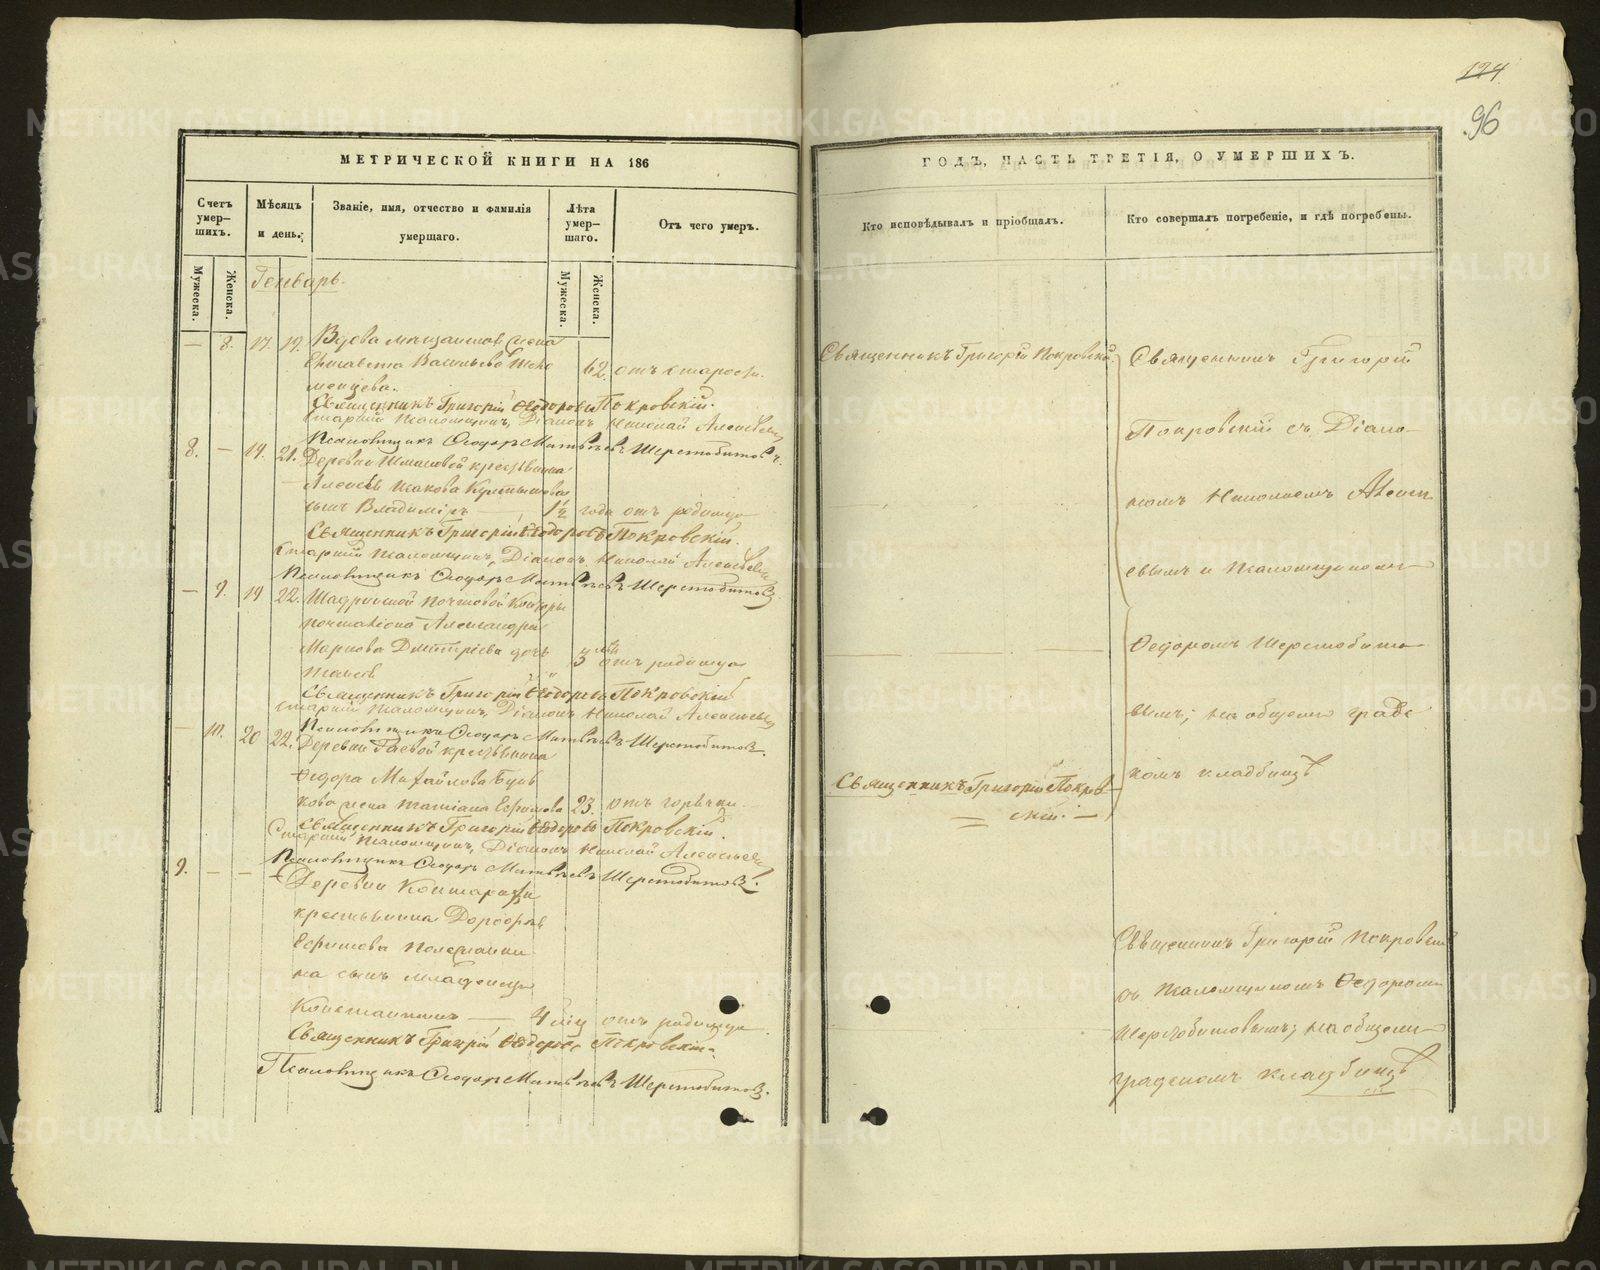 124
96
МЕТРИЧЕСКОЙ КНИГИ НА 186
ГОДЪ, ЧАСТЬ ТРЕТІЯ, О УМЕРШИХЪ.
Счетъ умер-
шихъ.
Мѣсяцъ
и день.
Званіе, имя, отчество и фамилія
умершаго.
Лѣта
умер-
шаго.
Отъ чего умеръ.
Кто исповѣдывалъ и пріобщалъ.
Кто совершалъ погребеніе, и гдѣ погребены.
Мужеска.
Женска.
Мужеска.
Женска.
Генварь.
— 8. 17 19. Вдова мѣщанская жена
Елисавета Васильева
62. отъ старости.
Священникъ Григорій Ѳеодоровъ Покровскій.
Старшій Псаломщикъ, Діаконъ Николай Алексѣевъ
Псаломщикъ Ѳеодоръ Матвѣевъ Шерстобитовъ.
8. — 19. 21. Деревни крестьянина
Алексѣя Исакова
сынъ Владиміръ — 1½ года отъ родимца
Священникъ Григорій Ѳеодоровъ Покровскій.
Старшій Псаломщикъ, Діаконъ Николай Алексѣевъ
Псаломщикъ Ѳеодоръ Матвѣевъ Шерстобитовъ.
— 9. 19 22. Шадринской Почтовой Конторы
почталіона Александра
Маркова Дмитріева дочь 3 отъ родимца
Священникъ Григорій Ѳеодоровъ Покровскій
Старшій Псаломщикъ, Діаконъ Николай Алексѣевъ
Псаломщикъ Ѳеодоръ Матвѣевъ Шерстобитовъ.
— 10. 20 22. Деревни Гаевой крестьянина
Ѳедора Михайлова
жена Татіана Ефимова 23. отъ горячки.
Священникъ Григорій Ѳеодоровъ Покровскій.
Старшій Псаломщикъ, Діаконъ Николай Алексѣевъ
Псаломщикъ Ѳеодоръ Матвѣевъ Шерстобитовъ.
9. — — Деревни
крестьянина
Ефимова
на сынъ младенецъ
Константинъ — 4 отъ родимца
Священникъ Григорій Ѳеодоровъ Покровскій
Псаломщикъ Ѳеодоръ Матвѣевъ Шерстобитовъ.
Священникъ Григорій Покровскій.
Священникъ Григорій Покров-
скій. —
Священникъ Григорій
Покровскій съ Діако-
номъ Николаемъ Алексѣ-
евымъ и Псаломщикомъ
Ѳедоромъ Шерстобито-
вымъ; на общемъ градс-
комъ кладбищѣ
Священникъ Григорій Покровскій
съ Псаломщикомъ Ѳедоромъ
Шерстобитовымъ; на общемъ
градскомъ кладбищѣ
METRIKI.GASO-URAL.RU